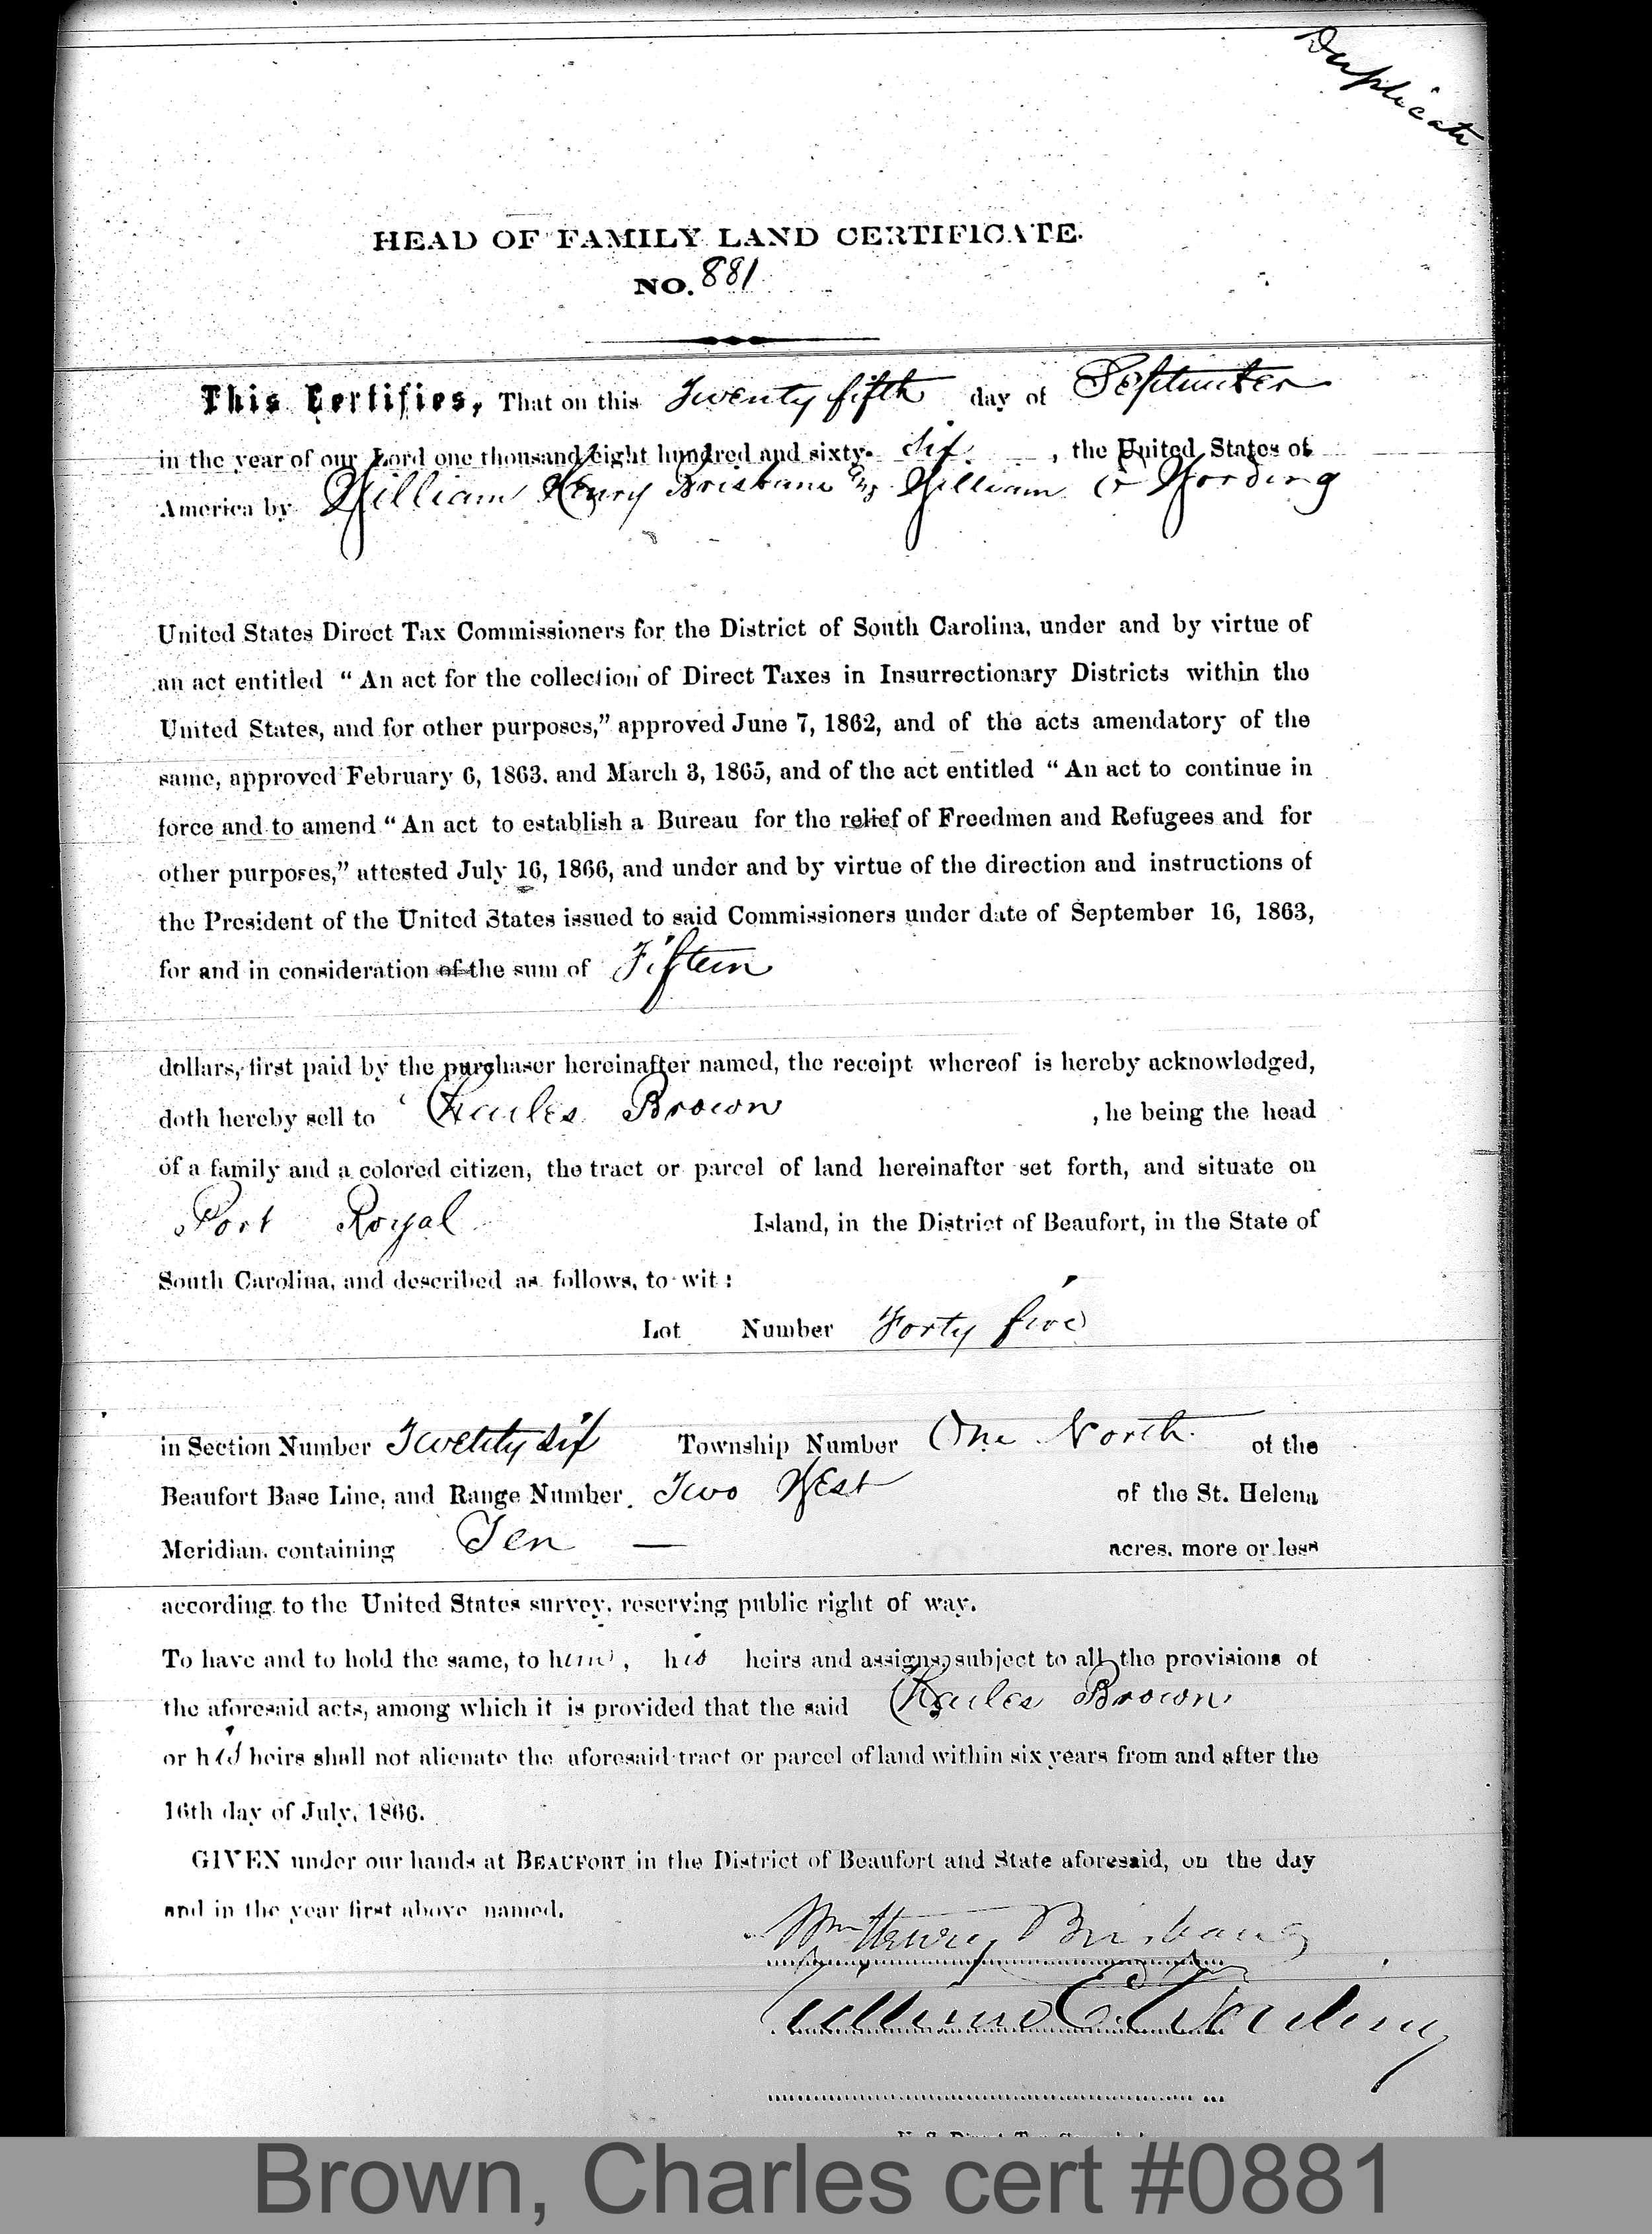 Duplicate
HEAD OF FAMILY LAND CERTIFICATE.
NO. 881
This Certifies, That on this Twenty fifth day of September
in the year of our Lord one thousand eight hundred and sixty- six , the United States of
America by William Henry Brisbane William E Wording
United States Direct Tax Commissioners for the District of South Carolina, under and by virtue of
an act entitled “ An act for the collection of Direct Taxes in Insurrectionary Districts within the
United States, and for other purposes,” approved June 7, 1862, and of the acts amendatory of the
same, approved February 6, 1863. and March 3, 1865, and of the act entitled “ An act to continue in
force and to amend “ An act to establish a Bureau for the relief of Freedmen and Refugees and for
other purposes,” attested July 16, 1866, and under and by virtue of the direction and instructions of
the President of the United States issued to said Commissioners under date of September 16, 1863,
for and in consideration of the sum of Fifteen
dollars, first paid by the purchaser hereinafter named, the receipt whereof is hereby acknowledged,
doth hereby sell to Charles Brown , he being the head
of a family and a colored citizen, the tract or parcel of land hereinafter set forth, and situate on
Port Royal Island, in the District of Beaufort, in the State of
South Carolina, and described as follows, to wit :
Lot Number Forty five
in Section Number Twenty six Township Number One North of the
Beaufort Base Line, and Range Number. Two West of the St. Helena
Meridian. containing Ten — acres. more or less
according to the United States survey. reserving public right of way.
To have and to hold the same, to him , his heirs and assigns, subject to all the provisions of
the aforesaid acts, among which it is provided that the said Charles Brown
or his heirs shall not alienate the aforesaid tract or parcel of land within six years from and after the
16th day of July, 1866.
GIVEN under our hands at BEAUFORT in the District of Beaufort and State aforesaid, on the day
and in the year first above named.
Wm Henry Brisbane
William E. Wording
Brown, Charles cert #0881